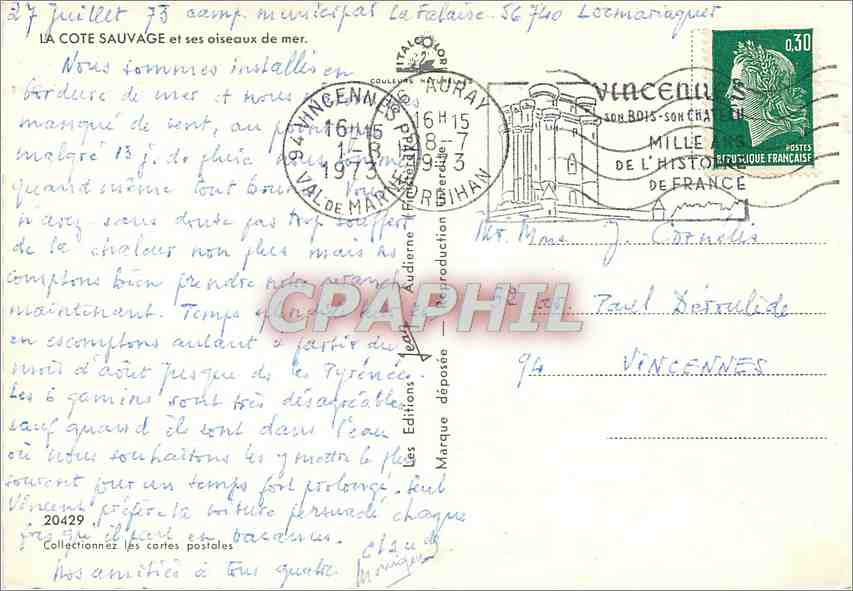 27 juillet 73 camp. municipal La Falaise. 56 740 Locmariaquer
LA COTE SAUVAGE et ses oiseaux de mer.
Nous sommes installés en
bordure de mer et nous
manqué de vent, au point
malgré 13 j. de pluie nous sommes
quand même tout bronzés. Vous
n'avez sans doute pas trop souffert
de la chaleur non plus mais ns
comptons bien prendre notre revanche
maintenant. Temps splendide
en escomptons autant à partir du
mois d'août jusque ds les Pyrénées.
Les 6 gamins sont très désagréables
sauf quand ils sont dans l'eau
où nous souhaitons les y mettre le plus
souvent pour un temps fort prolongé. Seul
Vincent préfère la voiture persuadé chaque
fois qu'il part en vacances.
Nos amitiés à tous quatre
20429
Collectionnez les cartes postales
ITALCOLOR
COULEURS NATURELLES
Les Editions Jean Audierne (Finistère)
Marque déposée — Reproduction interdite
94 VINCENNES
16H15
1-8
1973
VAL DE MARNE
56 AURAY
16H15
28-7
1973
MORBIHAN
VINCENNES
SON BOIS - SON CHATEAU
MILLE ANS
DE L'HISTOIRE
DE FRANCE
0,30
POSTES
REPUBLIQUE FRANÇAISE
Mr. Mme J. Cornélis
Paul Déroulède
94 VINCENNES
CPAPHIL